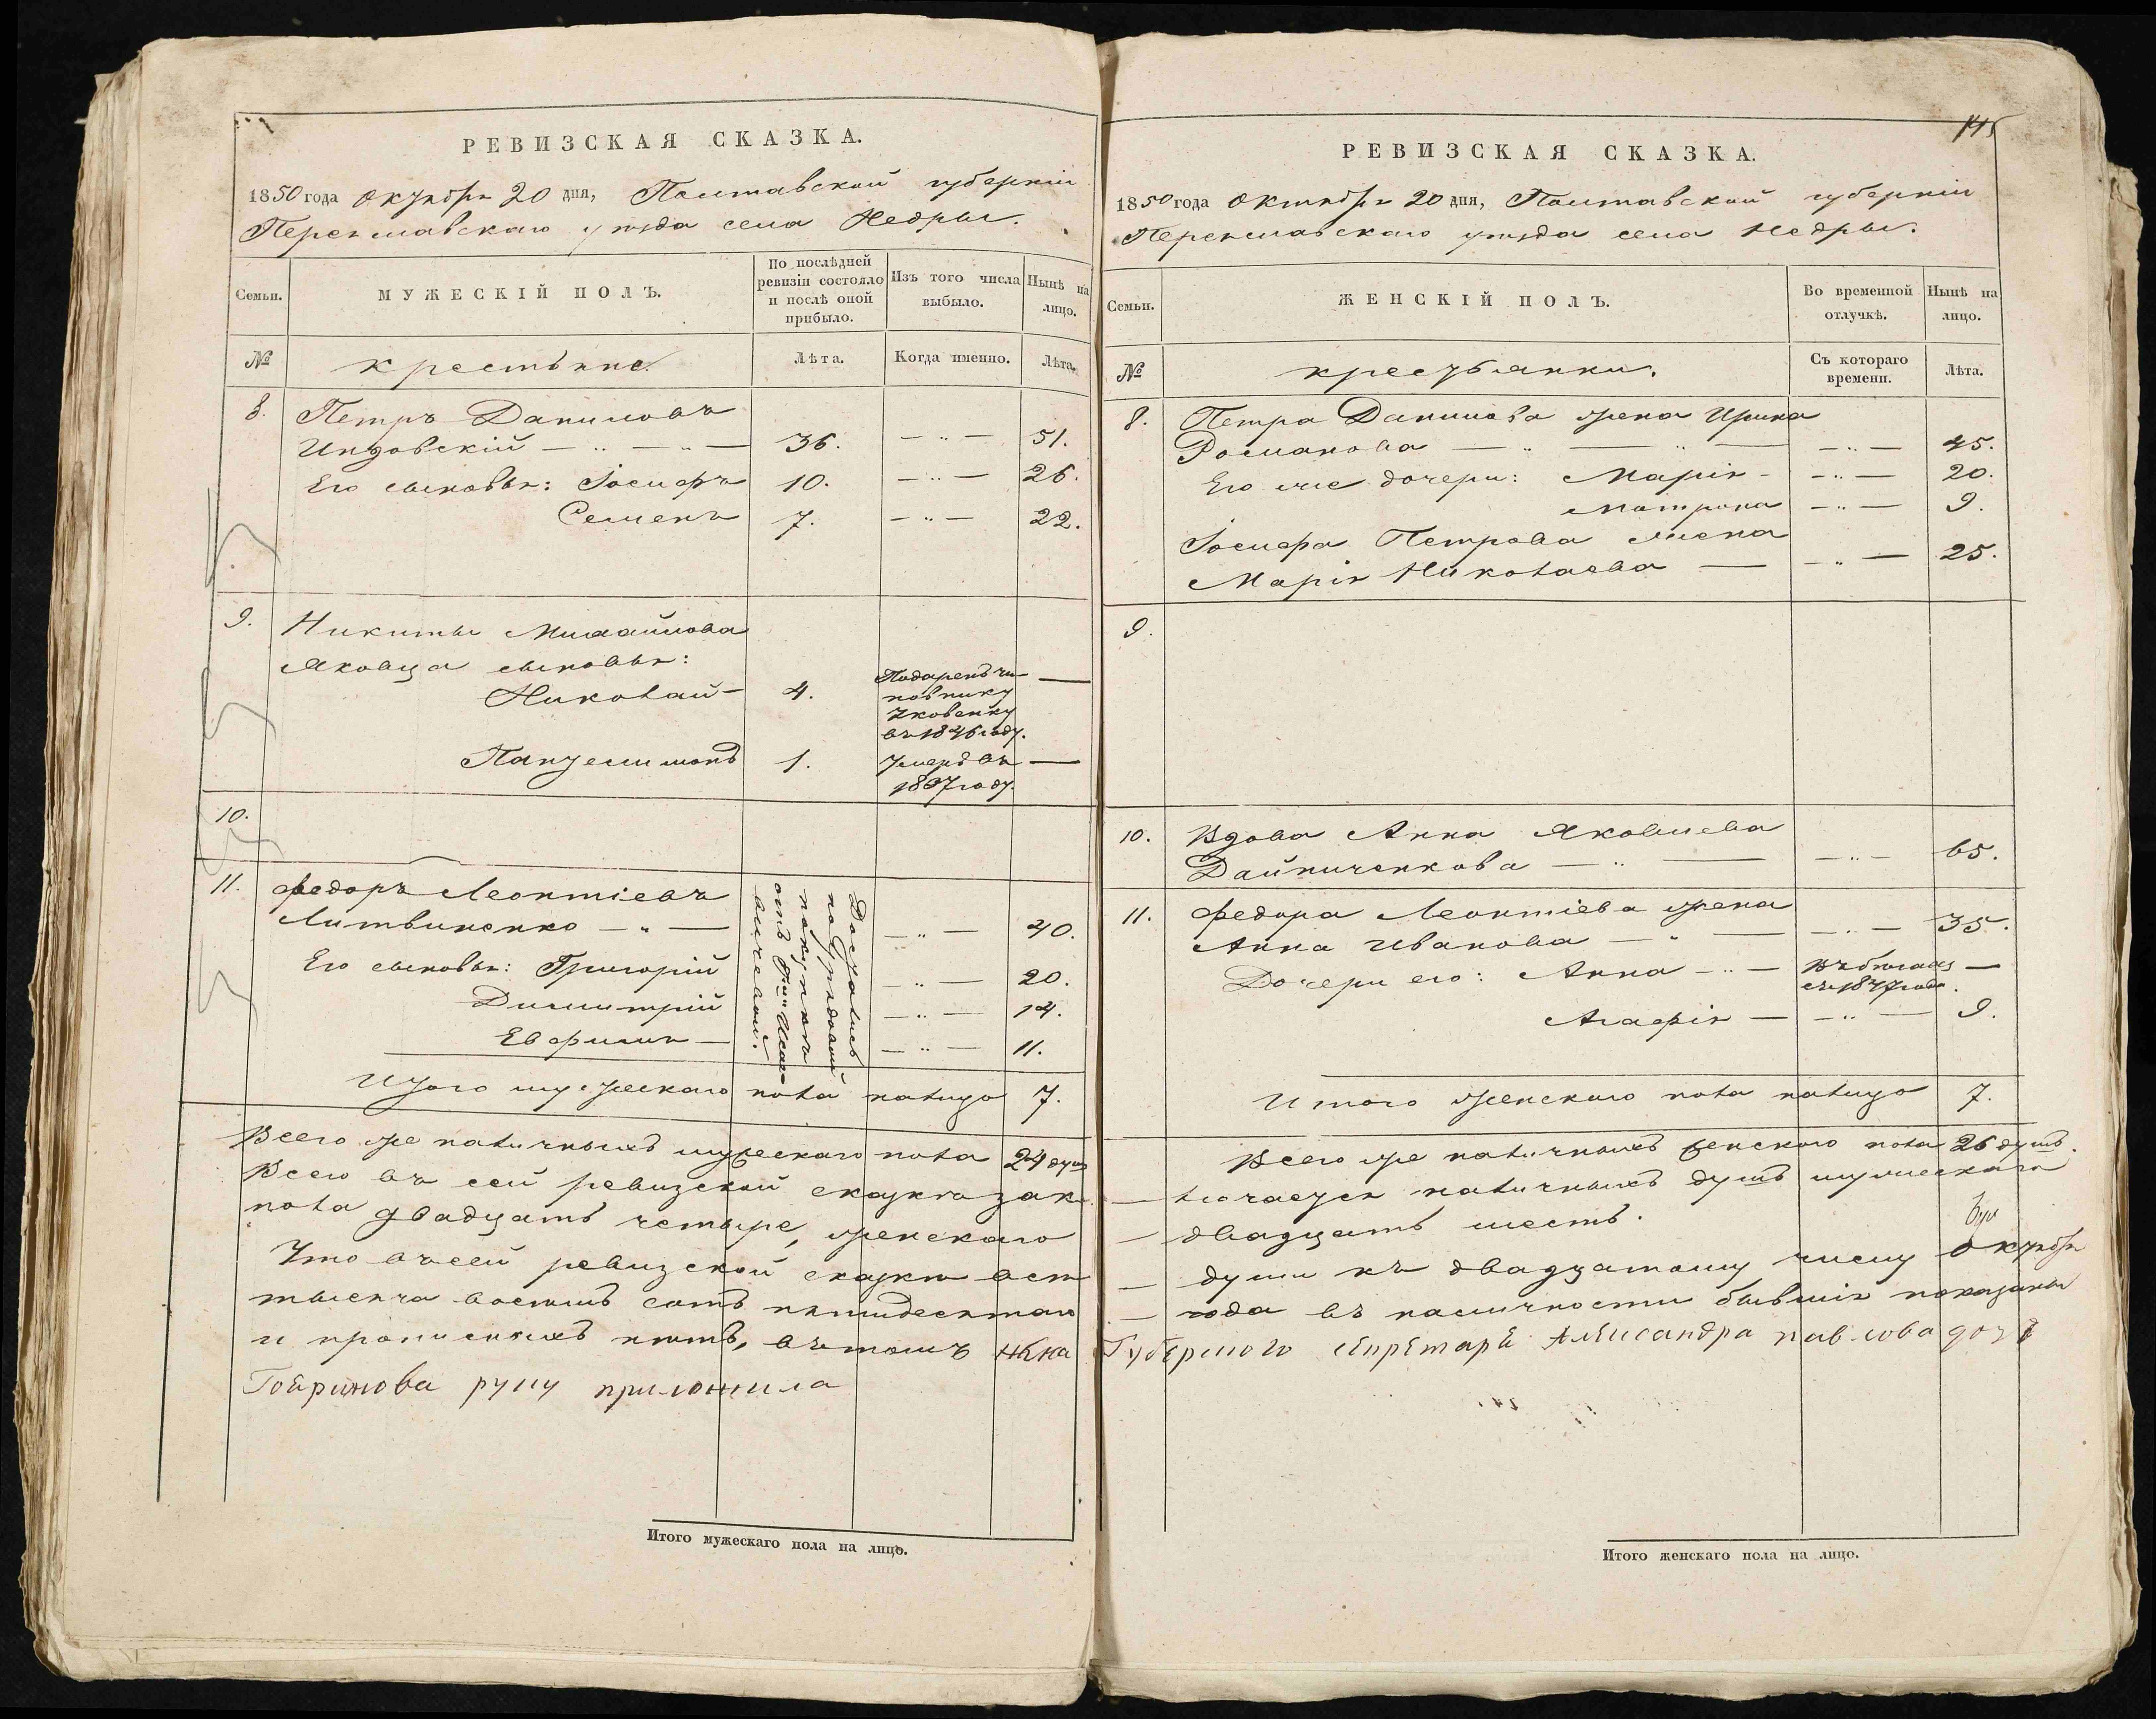 РЕВИЗСКАЯ СКАЗКА.
1850 года Октября 20 дня, Полтавской губерніи
Переяславскаго уѣзда села Недры.
Семьи.
МУЖЕСКІЙ ПОЛЪ.
По послѣдней
ревизіи состояло
и послѣ оной
прибыло.
Изъ того числа
выбыло.
Нынѣ на
лицо.
№
крестьяне
Лѣта.
Когда именно.
Лѣта.
8. Петръ Даниловъ
36. 51.
Его сыновья: Іосифъ 10. 26.
Семенъ 7. 22.
9. Никиты Михайлова
Яковца сыновья:
Николай 4. Подаренъ чи-
новнику
въ 1846 году.
Пантелимонъ 1. Умеръ въ
1837 году.
10.
11. Федоръ Леонтіевъ
Литвиненко 40.
Его сыновья: Григорій 20.
Димитрій 14.
Евфимъ 11.
Достались
по
покупкѣ
отъ
Итого мужескаго пола налицо 7.
Всего же наличныхъ мужескаго пола 24 душ
Всего въ сей ревизской сказкѣ зак
пола двадцать четыре, женскаго
Что въ сей ревизской сказкѣ всѣ
тысяча восемь сотъ пятидесятаго
и прописныхъ нѣтъ, въ томъ
руку приложила
Итого мужескаго пола на лицо.
РЕВИЗСКАЯ СКАЗКА.
1850 года Октября 20 дня, Полтавской губерніи
Переяславскаго уѣзда села Недры.
Семьи.
ЖЕНСКІЙ ПОЛЪ.
Во временной
отлучкѣ.
Нынѣ на
лицо.
№
крестьянки.
Съ котораго
времени.
Лѣта.
8. Петра Данилова жена Ирина
Романова 45.
Его же дочери: Марія 20.
Мотрона 9.
Іосифа Петрова жена
Марія Николаева 25.
9.
10. Вдова Анна Яковлева
65.
11. Федора Леонтіева жена
Анна Иванова 35.
Дочери его: Анна Въ бѣгахъ
съ 1847 года.
Агафія 9.
Итого женскаго пола налицо 7.
Всего же наличныхъ женскаго пола 26 душъ.
лючается наличныхъ душъ мужескаго
двадцать шесть.
души къ двадцатому числу Октября
года въ наличности бывшія показаны
секретаря Александра Павлова
Итого женскаго пола на лицо.